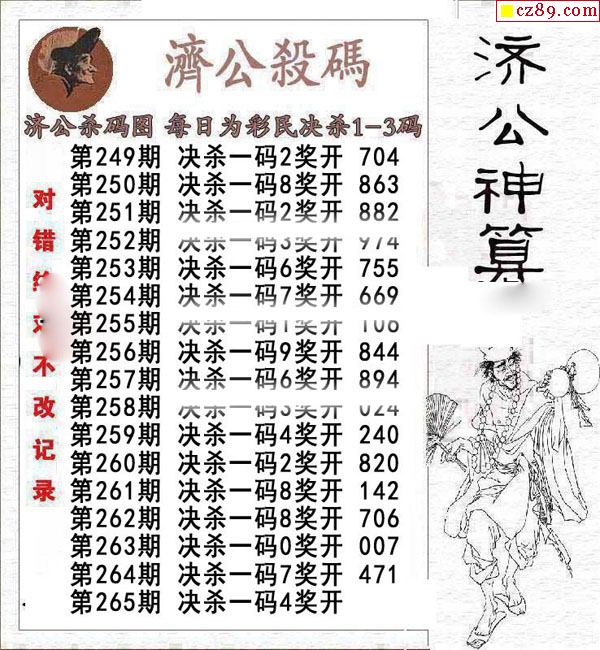 cz89.com
濟公殺碼
济公杀码图 每日为彩民决杀1-3码
第249期 决杀一码2奖开 704
第250期 决杀一码8奖开 863
第251期 决杀一码2奖开 882
第252期 决杀一码3奖开 974
第253期 决杀一码6奖开 755
第254期 决杀一码7奖开 669
第255期 决杀一码1奖开 108
第256期 决杀一码9奖开 844
第257期 决杀一码6奖开 894
第258期 决杀一码3奖开 024
第259期 决杀一码4奖开 240
第260期 决杀一码2奖开 820
第261期 决杀一码8奖开 142
第262期 决杀一码8奖开 706
第263期 决杀一码0奖开 007
第264期 决杀一码7奖开 471
第265期 决杀一码4奖开
对错不改记录
济公神算